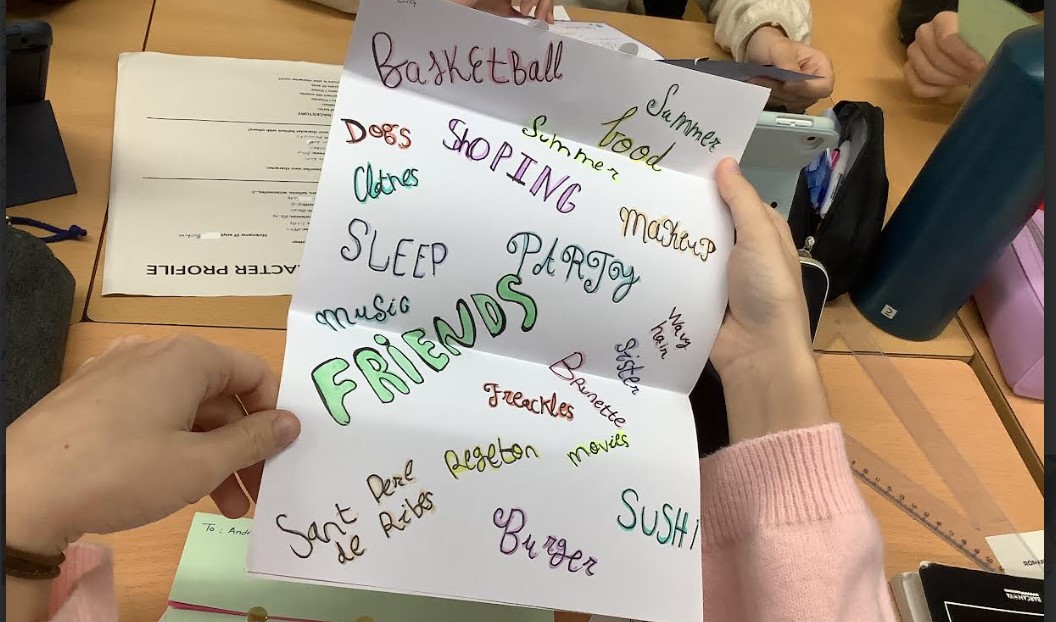 BasKEtBall
Summer
Food
Summer
DOGS
SHOPING
Clothes
MaKeuP
SLEEP
PARTy
music
FRiENDS
Wavy
hair
Sister
BRunette
Freackles
movies
Regeton
Sant Pere
de Ribes
Burger
SUSHI
To: Andr
ACTER PROFILE
2